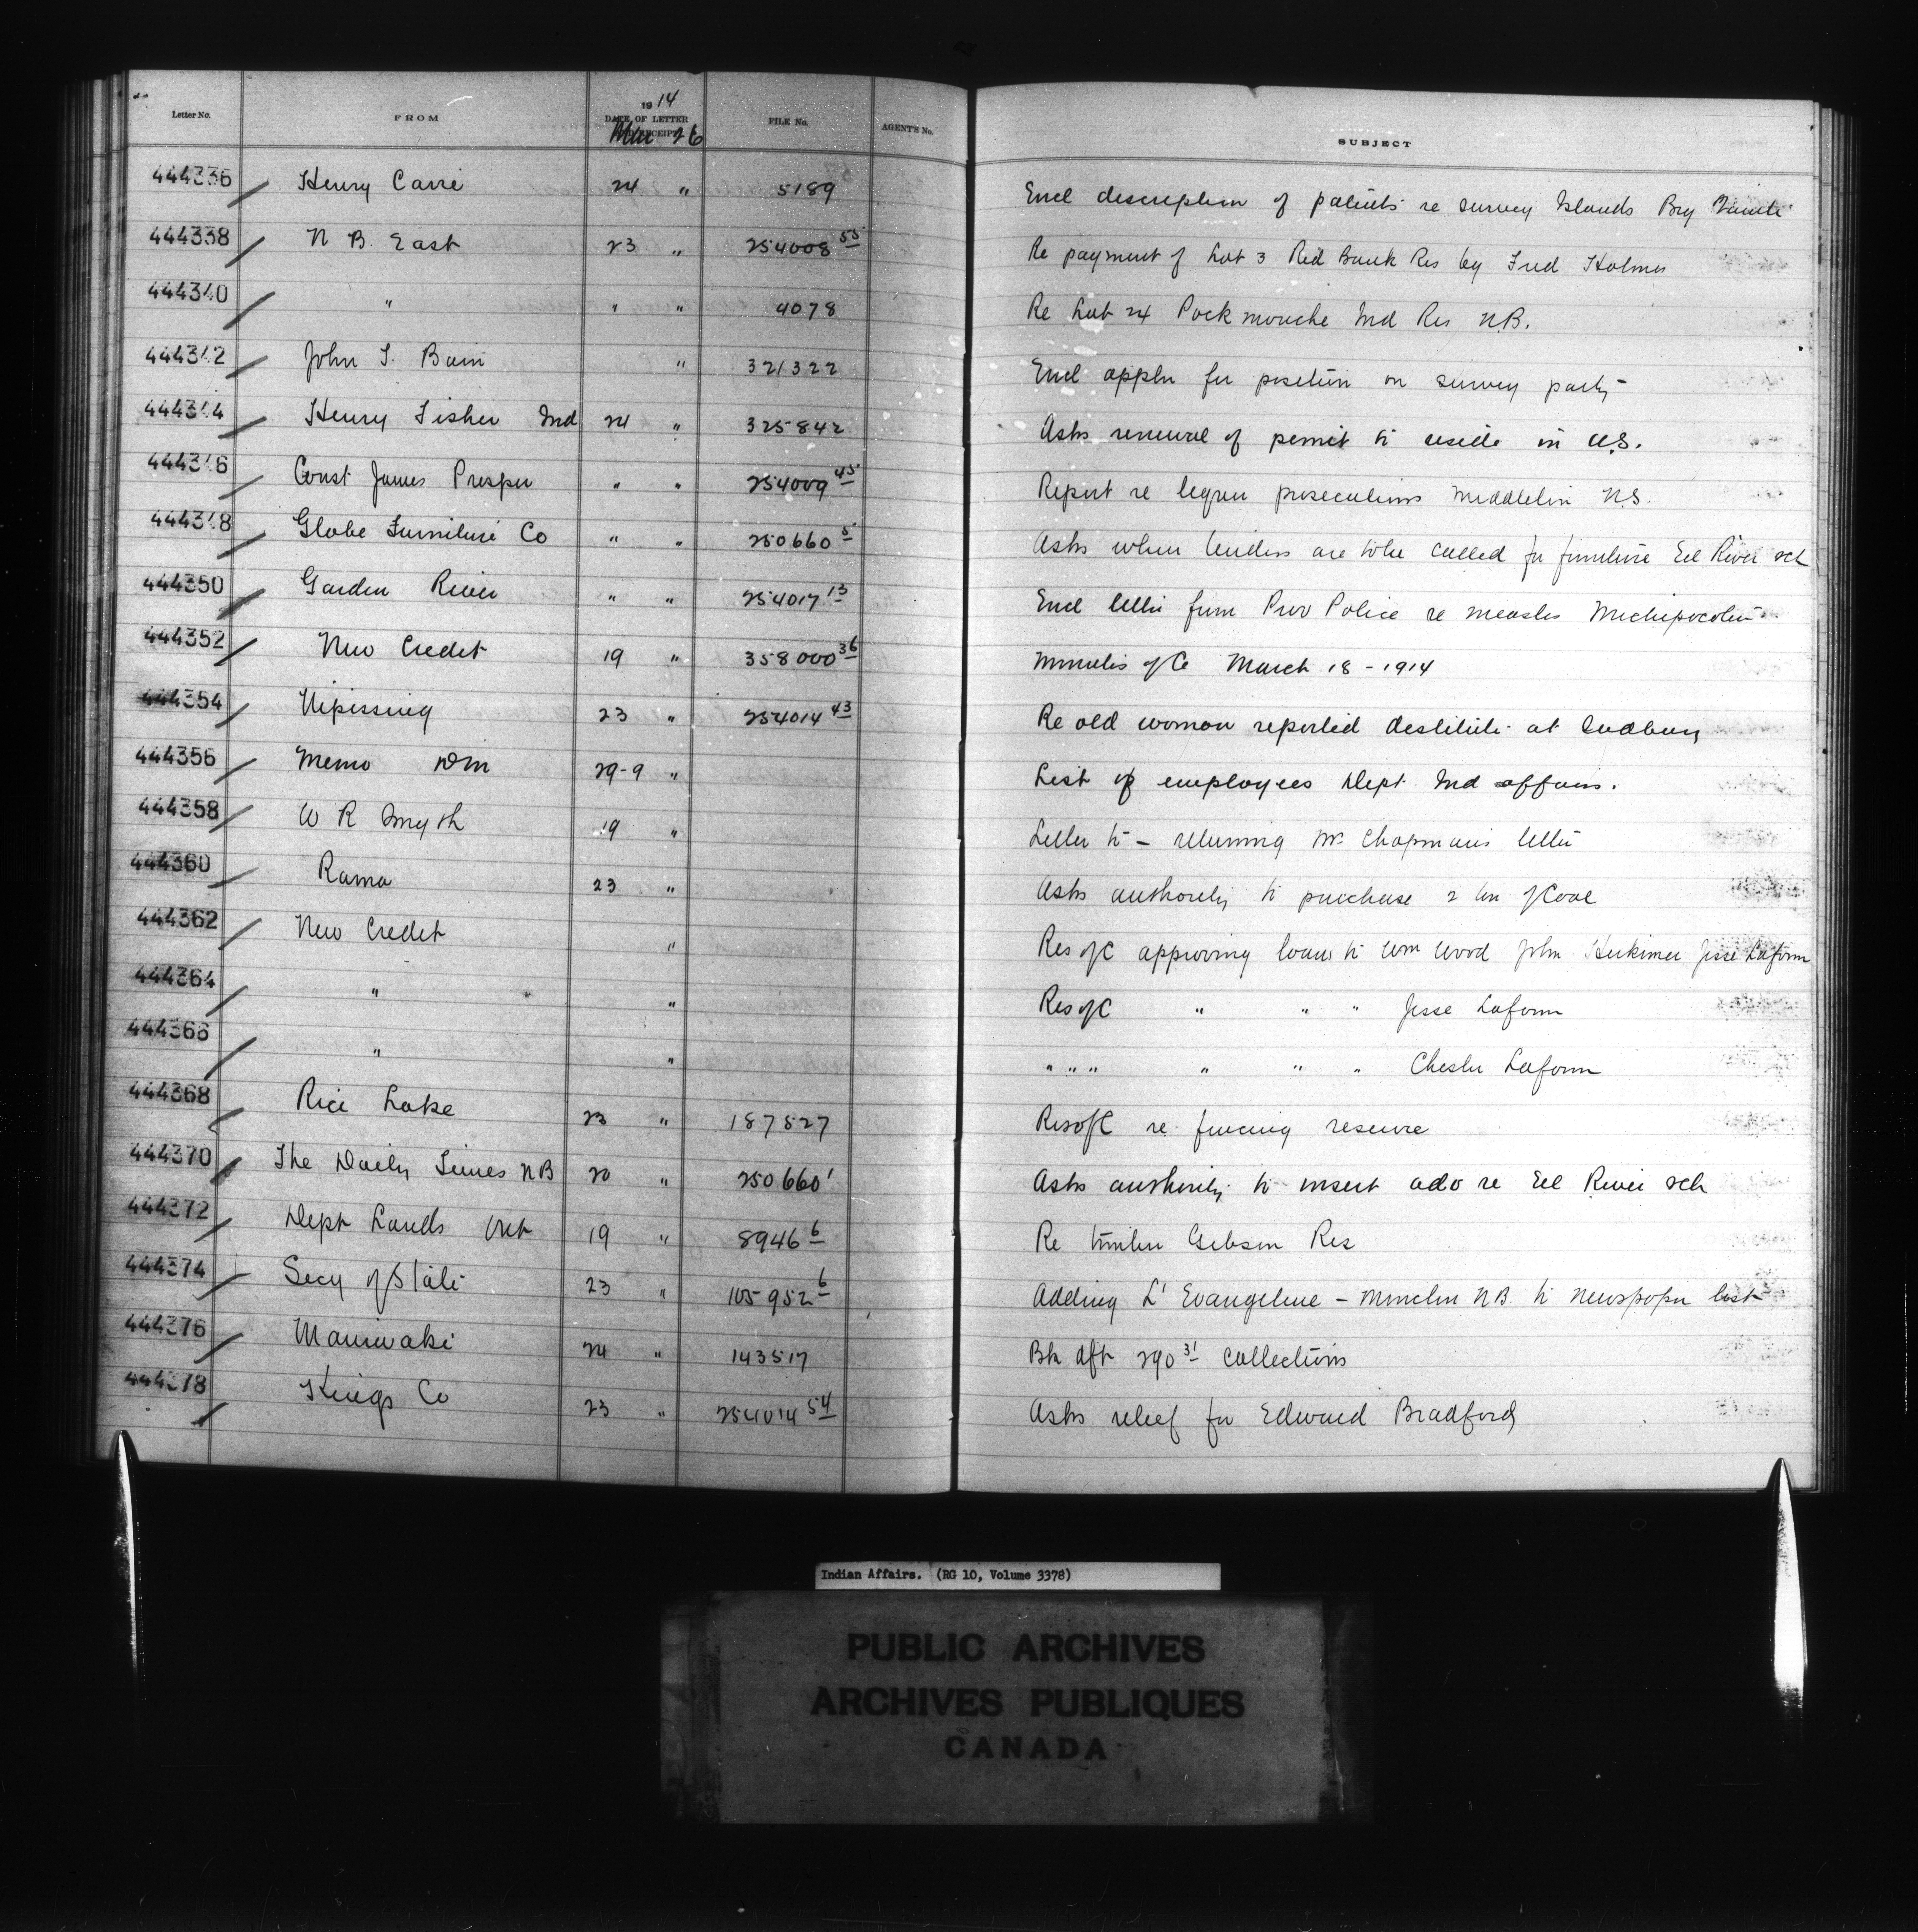 Letter No. FROM 1914 DATE OF LETTER RECEIPT Mar 26 FILE No. AGENT'S No. SUBJECT
444336 Henry Carre 24 " 5189 Encl description of patents re survey Islands Bay Quinte
444338 N B. East 23 " 254008 55 Re payment of Lot 3 Red Bank Res by Fred Holmes
444340 " " " 4078 Re Lot 24 Pockmouche Ind Res N.B.
444342 John T. Bain " 321322 Encl appln for position on survey party
444344 Henry Fisher Ind 24 " 325842 Asks renewal of permit to reside in U.S.
444346 Const James Prosper " " 254009 45 Report re liquor prosecutions Middleton N.S.
444348 Globe Furniture Co " " 250660 5 Asks when tenders are to be called for furniture Eel River sch
444350 Garden River " " 254017 13 Encl letter from Prov Police re measles Michipocoten
444352 New Credit 19 " 358000 36 Minutes of C March 18 - 1914
444354 Nipissing 23 " 254014 43 Re old woman reported destitute at Sudbury
444356 Memo DM 29-9 " List of employees Dept Ind Affairs.
444358 W R Smyth 19 " Letter to - returning Mr Chapmans letter
444360 Rama 23 " Asks authority to purchase 2 ton of Coal
444362 New Credit " Res of C approving loans to Wm Wood John Herkimer Jesse Laform
444364 " " Res of C " " " Jesse Laform
444366 " " " " " " " " Chester Laform
444368 Rice Lake 23 " 187527 Res of C re fencing reserve
444370 The Daily Times NB 20 " 250660 1 Asks authority to insert adv re Eel River sch
444372 Dept Lands Ont 19 " 8946 6 Re timber Gibson Res
444374 Secy of State 23 " 105952 6 Adding L' Evangeline - Moncton N.B. to newspaper list
444376 Maniwaki 24 " 143517 Bk dft 290 31 collections
444378 Kings Co 23 " 254014 54 Asks relief for Edward Bradford
Indian Affairs. (RG 10, Volume 3378)
PUBLIC ARCHIVES
ARCHIVES PUBLIQUES
CANADA